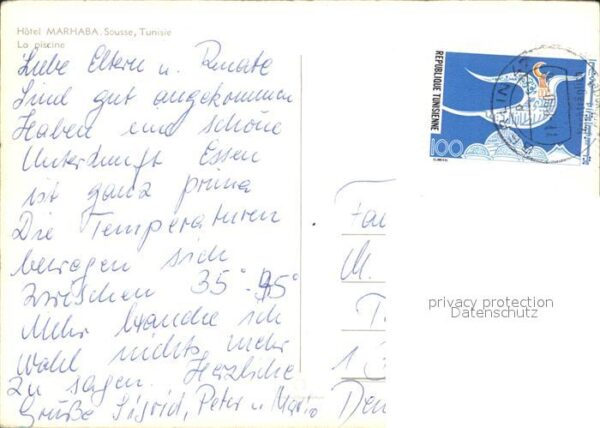 Hôtel MARHABA. Sousse, Tunisie
La piscine
Liebe Eltern u. Renate
Sind gut angekommen
Haben eine schöne
Unterkunft Essen
ist ganz prima
Die Temperaturen
bewegen sich
zwischen 35° - 45°
Mehr brauche ich
wohl nichts mehr
zu sagen. Herzliche
Grüße Sigrid, Peter u. Mario
REPUBLIQUE TUNISIENNE
100
Fa
M.
T
1
Den
privacy protection
Datenschutz